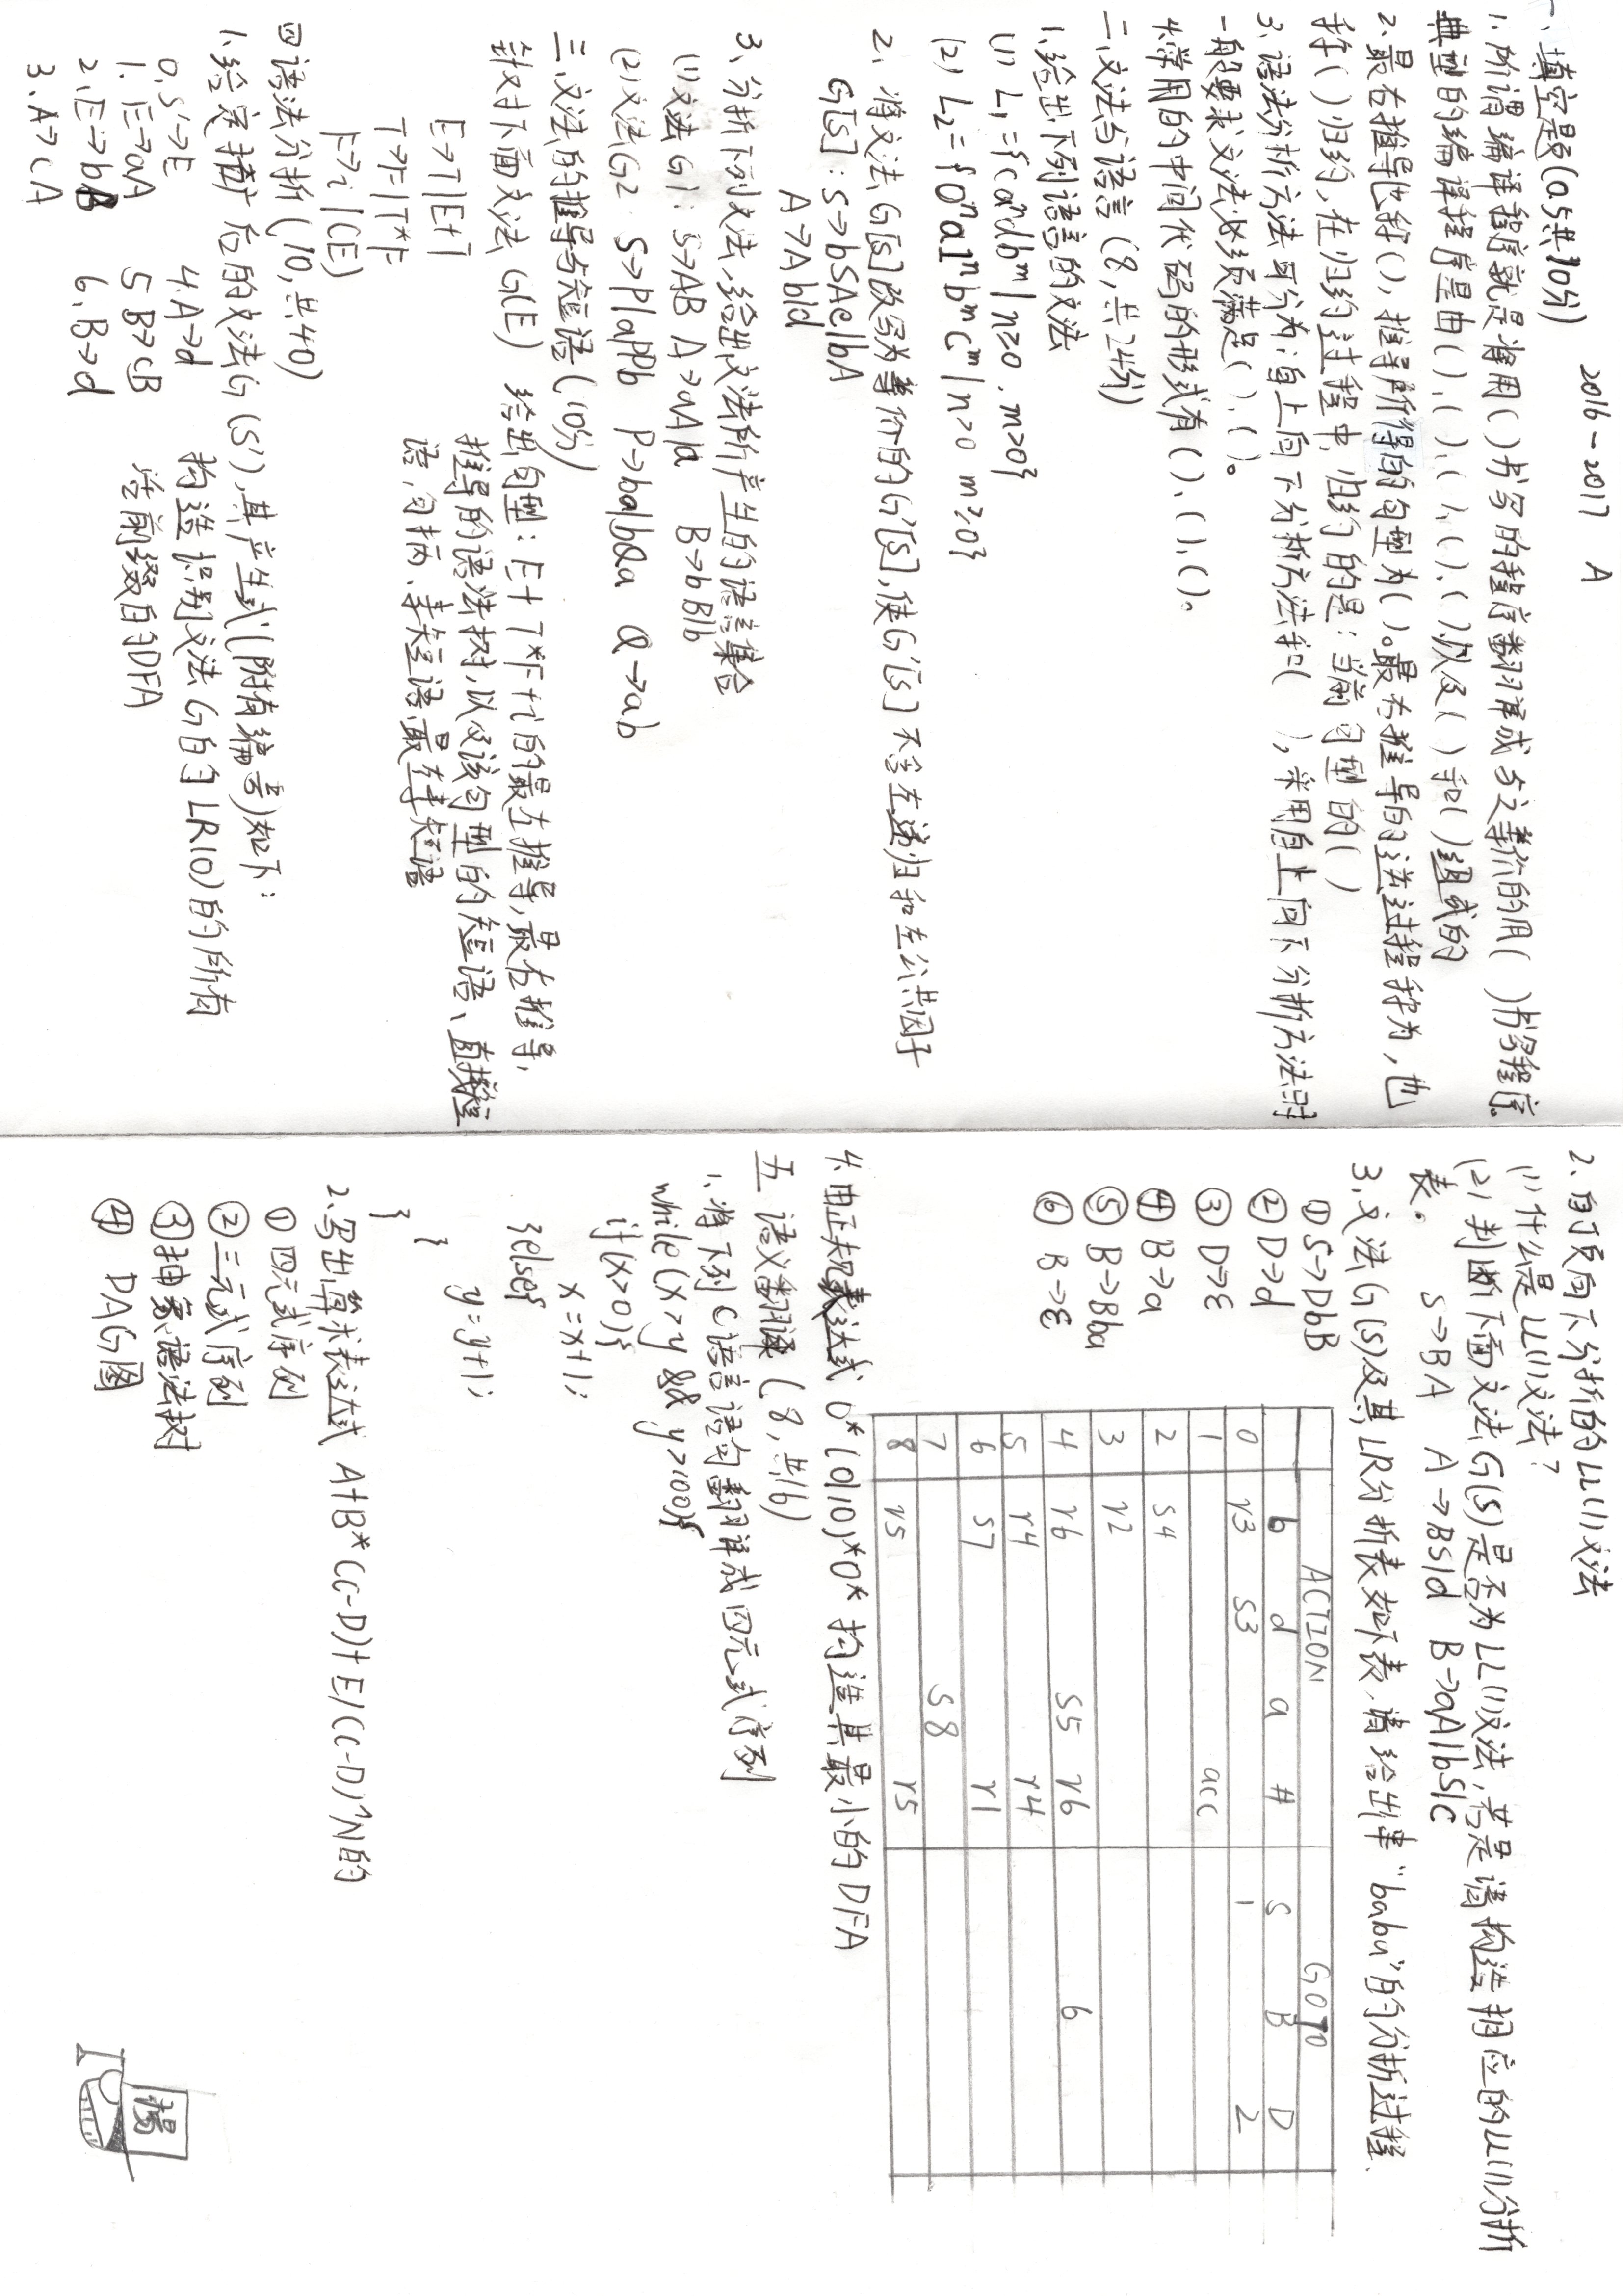 2016-2017 A
一、填空题(0.5共10分)
1、所谓编译程序就是将用( )书写的程序翻译成与之等价的用( )书写程序。
典型的编译程序是由( )、( )、( )、( )、( )以及( )和( )组成的
2、最右推导也称( ), 推导所得的句型为( )。最右推导的逆过程称为, 也
称( )归约, 在归约过程中, 归约的是: 当前句型的( )
3、语法分析方法可分为: 自上向下分析方法和( ), 采用自上向下分析方法时
一般要求文法必须满足( )、( )。
4、常用的中间代码的形式有( )、( )、( )。
二、文法与语言 (8, 共24分)
1、给出下列语言的文法
(1) L₁={caⁿdbᵐ | n≥0, m>0}
(2) L₂={0ⁿa1ⁿbᵐcᵐ | n>0 m≥0}
2、将文法G[S]改写为等价的G'[S], 使G'[S]不含左递归和左公共因子
G[S]: S→bSAe|bA
A→Ab|d
3、分析下列文法, 给出文法所产生的语言集合
(1)文法G1: S→AB A→aA|a B→bB|b
(2)文法G2 S→P|aPPb P→ba|bQa Q→ab
三、文法的推导与短语(10分)
针对下面文法 G(E) 给出句型: E+T*F+i的最左推导, 最右推导,
推导的语法树, 以及该句型的短语、直接短
语, 句柄、素短语、最左素短语
E→T|E+T
T→F|T*F
F→i|(E)
四 语法分析(10, 共40)
1、给定扩广后的文法G(S'), 其产生式(附有编号)如下:
构造识别文法G的LR(0)的所有
活前缀的DFA
0、S'→E 4. A→d
1. E→aA 5 B→cB
2、E→bB 6、B→d
3、A→cA
2、自顶向下分析的LL(1)文法
(1) 什么是LL(1)文法?
(2) 判断下面文法G(S)是否为LL(1)文法, 若是请构造相应的LL(1)分析
表。 S→BA A→BS|d B→aA|bS|c
3、文法G(S)及其LR分析表如下表, 请给出串“baba”的分析过程.
① S→DbB
② D→d
③ D→ε
④ B→a
⑤ B→Bba
⑥ B→ε
ACTION GOTO
b d a # S B D
0 r3 S3 1 2
1 acc
2 S4
3 r2
4 r6 S5 r6 6
5 r4 r4
6 S7 r1
7 S8
8 r5 r5
4、由正规表达式 0*(0|10)*0* 构造其最小的DFA
五 语义翻译 (8, 共16)
1、将下列C语言语句翻译成四元式序列
while (x>y && y>100){
if (x>0){
x=x+1;
}else{
y=y+1;
}
}
2、写出算术表达式 A+B*(C-D)+E/(C-D)^N的
① 四元式序列
② 三元式序列
③ 抽象语法树
④ DAG图